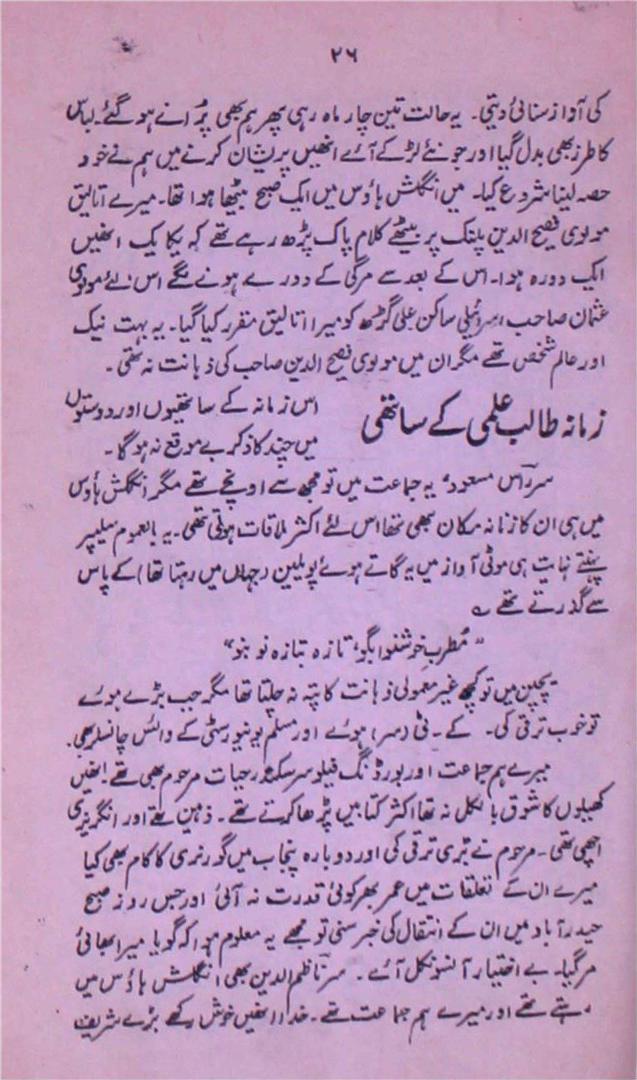 ۲۶
کی آواز سنائی دیتی۔ یہ حالت تین چار ماہ رہی پھر ہم بھی پُرانے ہو گئے۔ لباس
کا طرز بھی بدل گیا اور جو نئے لڑکے آئے انھیں پریشان کرنے میں ہم نے خود
حصہ لینا شروع کیا۔ میں انگلش ہاؤس میں ایک صبح بیٹھا ہوا تھا۔ میرے اتالیق
مولوی فصیح الدین پلنگ پر بیٹھے کلام پاک پڑھ رہے تھے کہ یکایک انھیں
ایک دورہ ہوا۔ اس کے بعد سے مرگی کے دورے ہونے لگے اس لئے مولوی
عثمان صاحب اسرائیلی ساکن علی گڑھ کو میرا اتالیق مقرر کیا گیا۔ یہ بہت نیک
اور عالم شخص تھے مگر ان میں مولوی فصیح الدین صاحب کی ذہانت نہ تھی۔
زمانہ طالب علمی کے ساتھی
اس زمانہ کے ساتھیوں اور دوستوں
میں چند کا ذکر بے موقع نہ ہوگا۔
سر راس مسعود، یہ جماعت میں تو مجھ سے اونچے تھے مگر انگلش ہاؤس
میں ہی ان کا زنانہ مکان بھی تھا اس لئے اکثر ملاقات ہوتی تھی۔ یہ بالعموم سلیپر
پہنے نہایت ہی موٹی آواز میں یہ گاتے ہوئے پویلین (جہاں میں رہتا تھا) کے پاس
سے گذرتے تھے ؎
"مُطرب خوشنوا بگو، تازہ بتازہ نو بنو"
بچپن میں تو کچھ غیر معمولی ذہانت کا پتہ نہ چلتا تھا مگر جب بڑے ہوئے
تو خوب ترقی کی۔ کے۔ ٹی (سر) ہوئے اور مسلم یونیورسٹی کے وائس چانسلر بھی۔
میرے ہم جماعت اور بورڈنگ فیلو سر سکندر حیات مرحوم بھی تھے انھیں
کھیلوں کا شوق بالکل نہ تھا اکثر کتابیں پڑھا کرتے تھے۔ ذہین تھے اور انگریزی
اچھی تھی۔ مرحوم نے بڑی ترقی کی اور دوبارہ پنجاب میں گورنری کا کام بھی کیا
میرے ان کے تعلقات میں عمر بھر کوئی قدرت نہ آئی اور جس روز صبح
حیدرآباد میں ان کے انتقال کی خبر سنی تو مجھے یہ معلوم ہوا کہ گویا میرا بھائی
مر گیا۔ بے اختیار آنسو نکل آئے۔ سر ناظم الدین بھی انگلش ہاؤس میں
رہتے تھے اور میرے ہم جماعت تھے۔ خدا انھیں خوش رکھے بڑے شریف